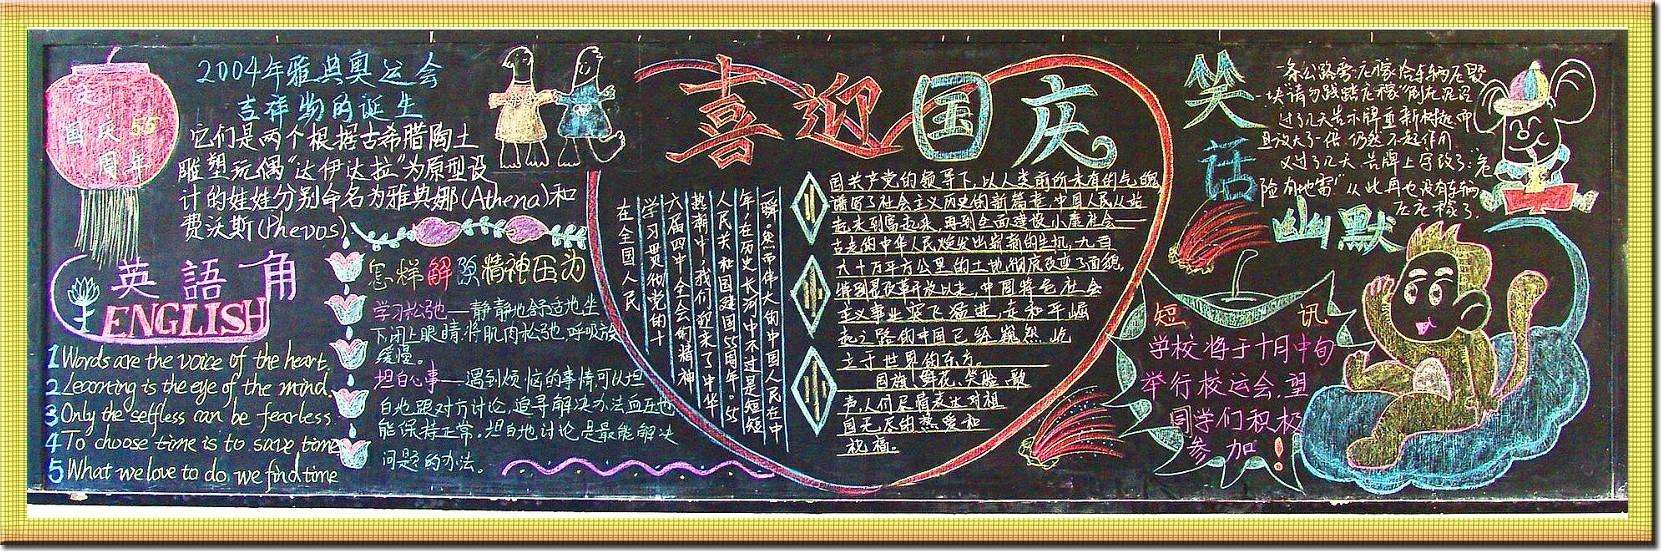 国庆55
周年
2004年雅典奥运会
吉祥物的诞生
它们是两个根据古希腊陶土
雕塑玩偶“达伊达拉”为原型设
计的娃娃分别命名为雅典娜(Athena)和
费沃斯(Phevos)
英語角
ENGLISH
1 Words are the voice of the heart.
2 Learning is the eye of the mind.
3 Only the selfless can be fearless
4 To choose time is to save time
5 What we love to do we find time
怎样解除精神压力
学习松弛——静静地舒适地坐
下闭上眼睛,将肌肉松弛,呼吸放
缓慢。
坦白心事——遇到烦恼的事情,可以坦
白地跟对方讨论,追寻解决办法血压也
能保持正常。坦白地讨论是最能解决
问题的办法。
喜迎国庆
在全国人民
学习贯彻党的十
六届四中全会的精神
热潮中,我们迎来了中华
人民共和国建国55周年。55
年,在历史长河中不过是短短
瞬,然而伟大的中国人民在中
国共产党的领导下,以人类前所未有的气魄
谱写了社会主义历史的新篇章,中国人民从站
起来到富起来,再到全面建设小康社会——
古老的中华人民焕发出崭新的生机,九百
六十万平方公里的土地彻底改变了面貌,
特别是改革开放以来,中国特色社会
主义事业突飞猛进,在和平崛
起之路的中国已经巍然屹
立于世界的东方。
国旗、鲜花、笑脸、歌
声,人们尽情表达对祖
国无尽的热爱和
祝福。
笑话
幽默
一条公路旁,庄稼
一块“请勿践踏庄稼”
过了几天告示牌重新树起,
且放大了一倍,仍然不起作用
又过了几天,告牌上写改了:“危
险,有地雷!”从此再也没有车辆
短讯
学校将于十月中旬
举行校运会,望
同学们积极
参加!